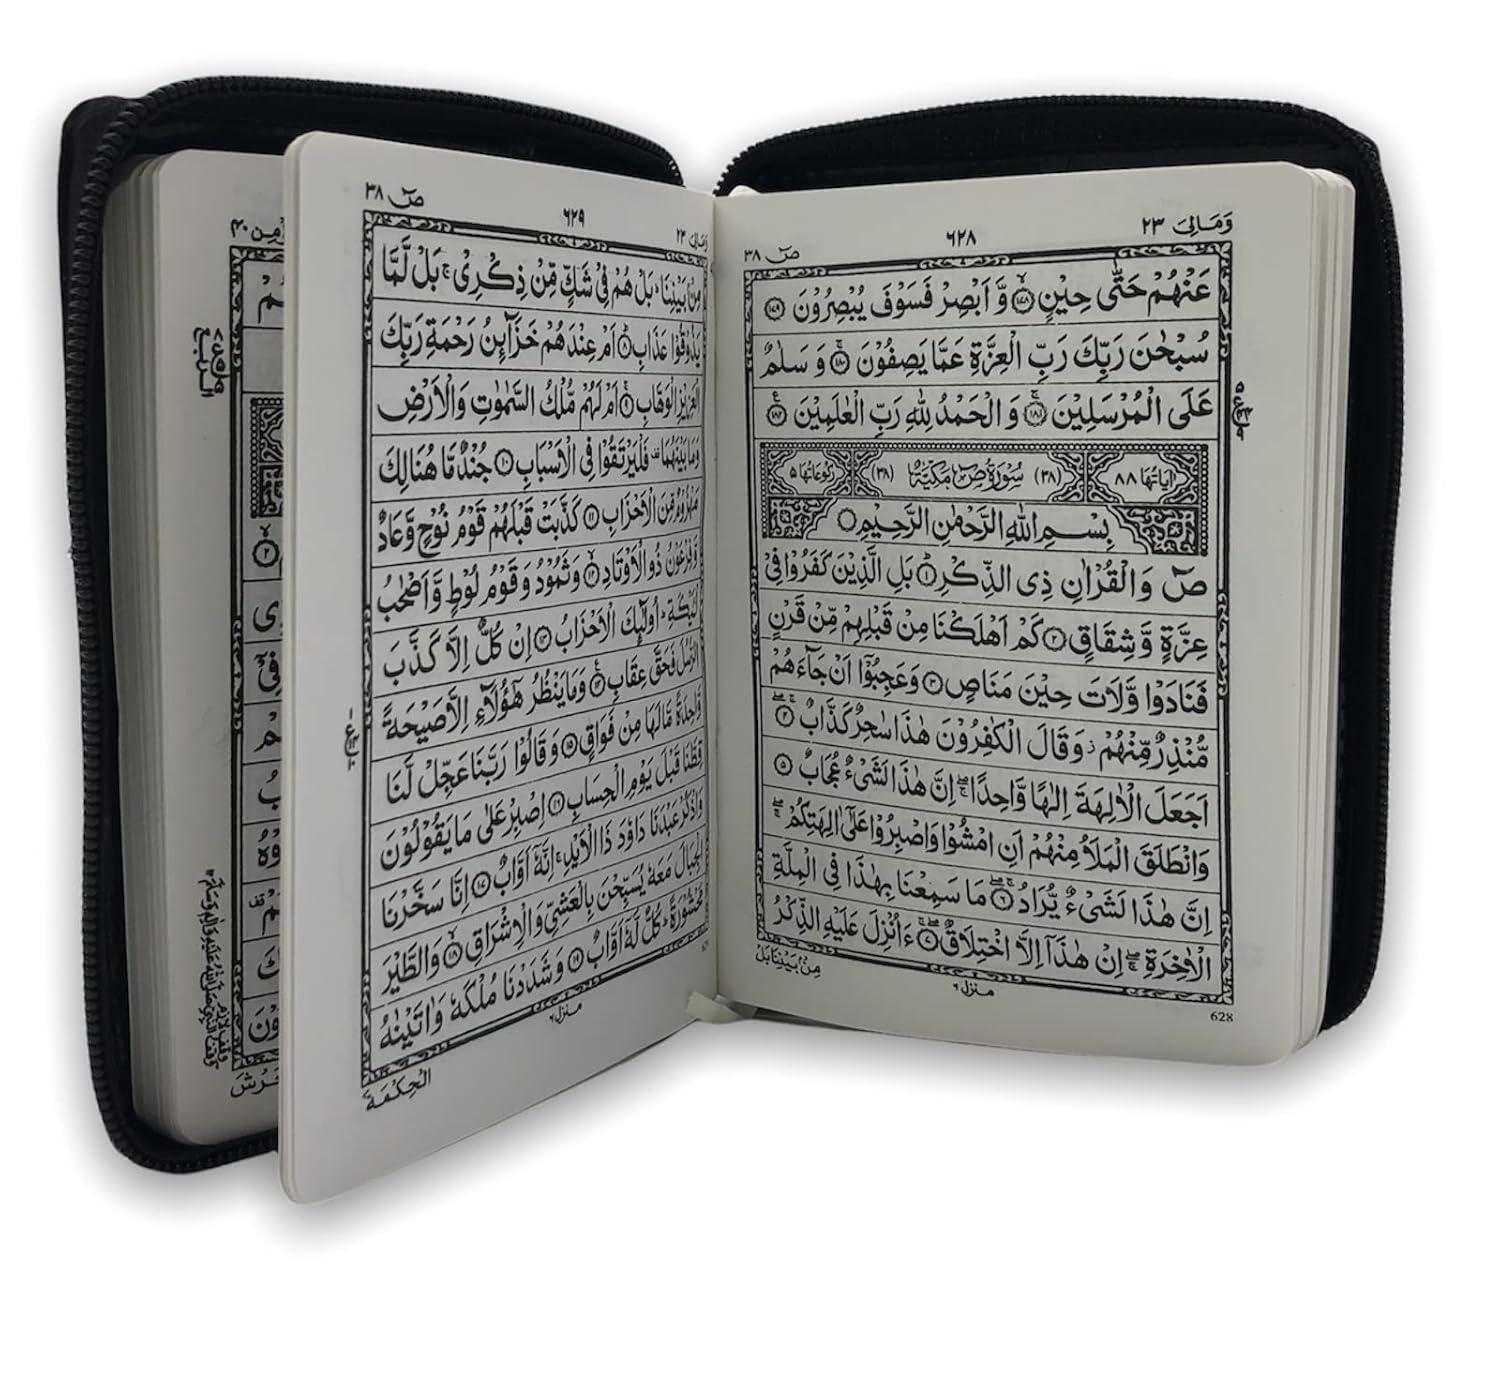 وَمَالِیَ ٢٣
٦٢٨
صٓ ٣٨
عَنْهُمْ حَتّٰى حِيْنٍ ۝١٧٨ وَّ اَبْصِرْ فَسَوْفَ يُبْصِرُوْنَ ۝١٧٩
سُبْحٰنَ رَبِّكَ رَبِّ الْعِزَّةِ عَمَّا يَصِفُوْنَ ۝١٨٠ وَ سَلٰمٌ
عَلَى الْمُرْسَلِيْنَ ۝١٨١ وَ الْحَمْدُ لِلّٰهِ رَبِّ الْعٰلَمِيْنَ ۝١٨٢
اٰيَاتُهَا ٨٨ (٣٨) سُوْرَةُ صٓ مَكِّيَّةٌ (٣٨) رُكُوْعَاتُهَا ٥
بِسْمِ اللّٰهِ الرَّحْمٰنِ الرَّحِيْمِ
صٓ وَالْقُرْاٰنِ ذِى الذِّكْرِ ۝١ بَلِ الَّذِيْنَ كَفَرُوْا فِىْ
عِزَّةٍ وَّ شِقَاقٍ ۝٢ كَمْ اَهْلَكْنَا مِنْ قَبْلِهِمْ مِّنْ قَرْنٍ
فَنَادَوْا وَّلَاتَ حِيْنَ مَنَاصٍ ۝٣ وَعَجِبُوْٓا اَنْ جَآءَهُمْ
مُّنْذِرٌ مِّنْهُمْ ز وَقَالَ الْكٰفِرُوْنَ هٰذَا سٰحِرٌ كَذَّابٌ ۝٤
اَجَعَلَ الْاٰلِهَةَ اِلٰهًا وَّاحِدًا اِنَّ هٰذَا لَشَىْءٌ عُجَابٌ ۝٥
وَانْطَلَقَ الْمَلَاُ مِنْهُمْ اَنِ امْشُوْا وَاصْبِرُوْا عَلٰٓى اٰلِهَتِكُمْ
اِنَّ هٰذَا لَشَىْءٌ يُّرَادُ ۝٦ مَا سَمِعْنَا بِهٰذَا فِى الْمِلَّةِ
الْاٰخِرَةِ اِنْ هٰذَآ اِلَّا اخْتِلَاقٌ ۝٧ ءَاُنْزِلَ عَلَيْهِ الذِّكْرُ
مِنْۢ بَيْنِنَا بَلْ
منزل ٦
628
وَمَالِیَ ٢٣
٦٢٩
صٓ ٣٨
مِنْۢ بَيْنِنَا بَلْ هُمْ فِىْ شَكٍّ مِّنْ ذِكْرِىْ بَلْ لَّمَّا
يَذُوْقُوْا عَذَابِ ۝٨ اَمْ عِنْدَهُمْ خَزَآئِنُ رَحْمَةِ رَبِّكَ
الْعَزِيْزِ الْوَهَّابِ ۝٩ اَمْ لَهُمْ مُّلْكُ السَّمٰوٰتِ وَالْاَرْضِ
وَمَا بَيْنَهُمَا فَلْيَرْتَقُوْا فِى الْاَسْبَابِ ۝١٠ جُنْدٌ مَّا هُنَالِكَ
مَهْزُوْمٌ مِّنَ الْاَحْزَابِ ۝١١ كَذَّبَتْ قَبْلَهُمْ قَوْمُ نُوْحٍ وَّعَادٌ
وَّفِرْعَوْنُ ذُو الْاَوْتَادِ ۝١٢ وَثَمُوْدُ وَقَوْمُ لُوْطٍ وَّاَصْحٰبُ
لْـَٔيْكَةِ اُولٰٓئِكَ الْاَحْزَابُ ۝١٣ اِنْ كُلٌّ اِلَّا كَذَّبَ
الرُّسُلَ فَحَقَّ عِقَابِ ۝١٤ وَمَا يَنْظُرُ هٰٓؤُلَآءِ اِلَّا صَيْحَةً
وَّاحِدَةً مَّا لَهَا مِنْ فَوَاقٍ ۝١٥ وَقَالُوْا رَبَّنَا عَجِّلْ لَّنَا
قِطَّنَا قَبْلَ يَوْمِ الْحِسَابِ ۝١٦ اِصْبِرْ عَلٰى مَا يَقُوْلُوْنَ
وَاذْكُرْ عَبْدَنَا دَاوٗدَ ذَا الْاَيْدِ اِنَّهٗٓ اَوَّابٌ ۝١٧ اِنَّا سَخَّرْنَا
الْجِبَالَ مَعَهٗ يُسَبِّحْنَ بِالْعَشِىِّ وَالْاِشْرَاقِ ۝١٨ وَالطَّيْرَ
مَحْشُوْرَةً كُلٌّ لَّهٗٓ اَوَّابٌ ۝١٩ وَشَدَدْنَا مُلْكَهٗ وَاٰتَيْنٰهُ
الْحِكْمَةَ
منزل ٦